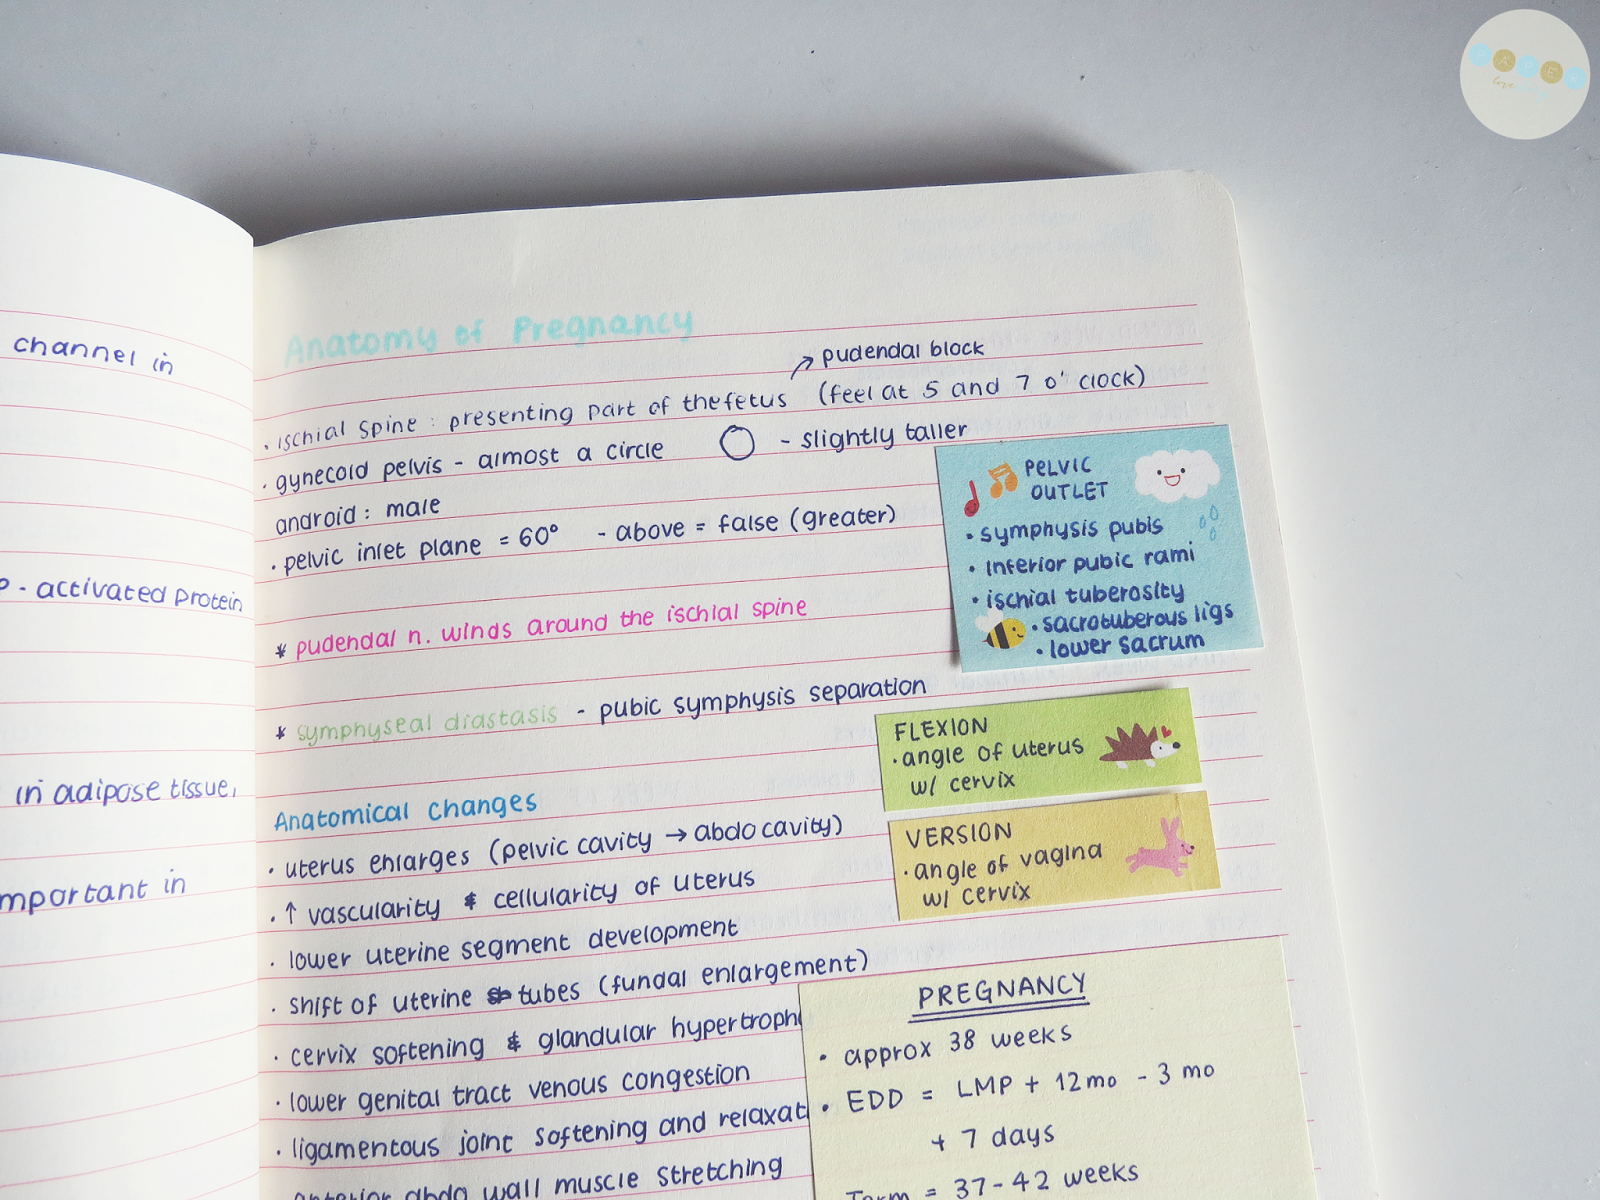 channel in
- activated protein
in adipose tissue,
important in
Anatomy of Pregnancy
↗ pudendal block
• ischial spine : presenting part of the fetus (feel at 5 and 7 o' clock)
• gynecoid pelvis - almost a circle ◯ - slightly taller
android : male
• pelvic inlet plane = 60° - above = false (greater)
* pudendal n. winds around the ischial spine
* symphyseal diastasis - pubic symphysis separation
PELVIC
OUTLET
• symphysis pubis
• inferior pubic rami
• ischial tuberosity
• sacrotuberous ligs
• lower sacrum
FLEXION
• angle of uterus
w/ cervix
VERSION
• angle of vagina
w/ cervix
Anatomical changes
• uterus enlarges (pelvic cavity → abdo cavity)
• ↑ vascularity & cellularity of uterus
• lower uterine segment development
• shift of uterine tubes (fundal enlargement)
• cervix softening & glandular hypertroph
• lower genital tract venous congestion
• ligamentous joint softening and relaxat
anterior abdo wall muscle stretching
PREGNANCY
• approx 38 weeks
• EDD = LMP + 12mo - 3 mo
+ 7 days
Term = 37-42 weeks
PAPER
love